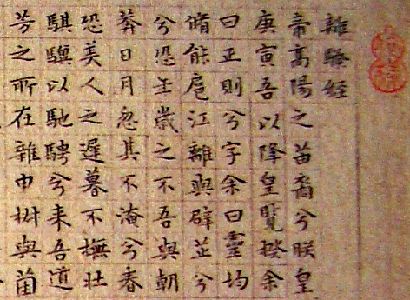 離騷經
帝高陽之苗裔兮朕皇
庚寅吾以降皇覽揆余
曰正則兮字余曰靈均
脩能扈江離與辟芷兮
兮恐年歲之不吾與朝
莽日月忽其不淹兮春
恐美人之遲暮不撫壯
騏驥以馳騁兮来吾道
芳之所在雜申椒與菌